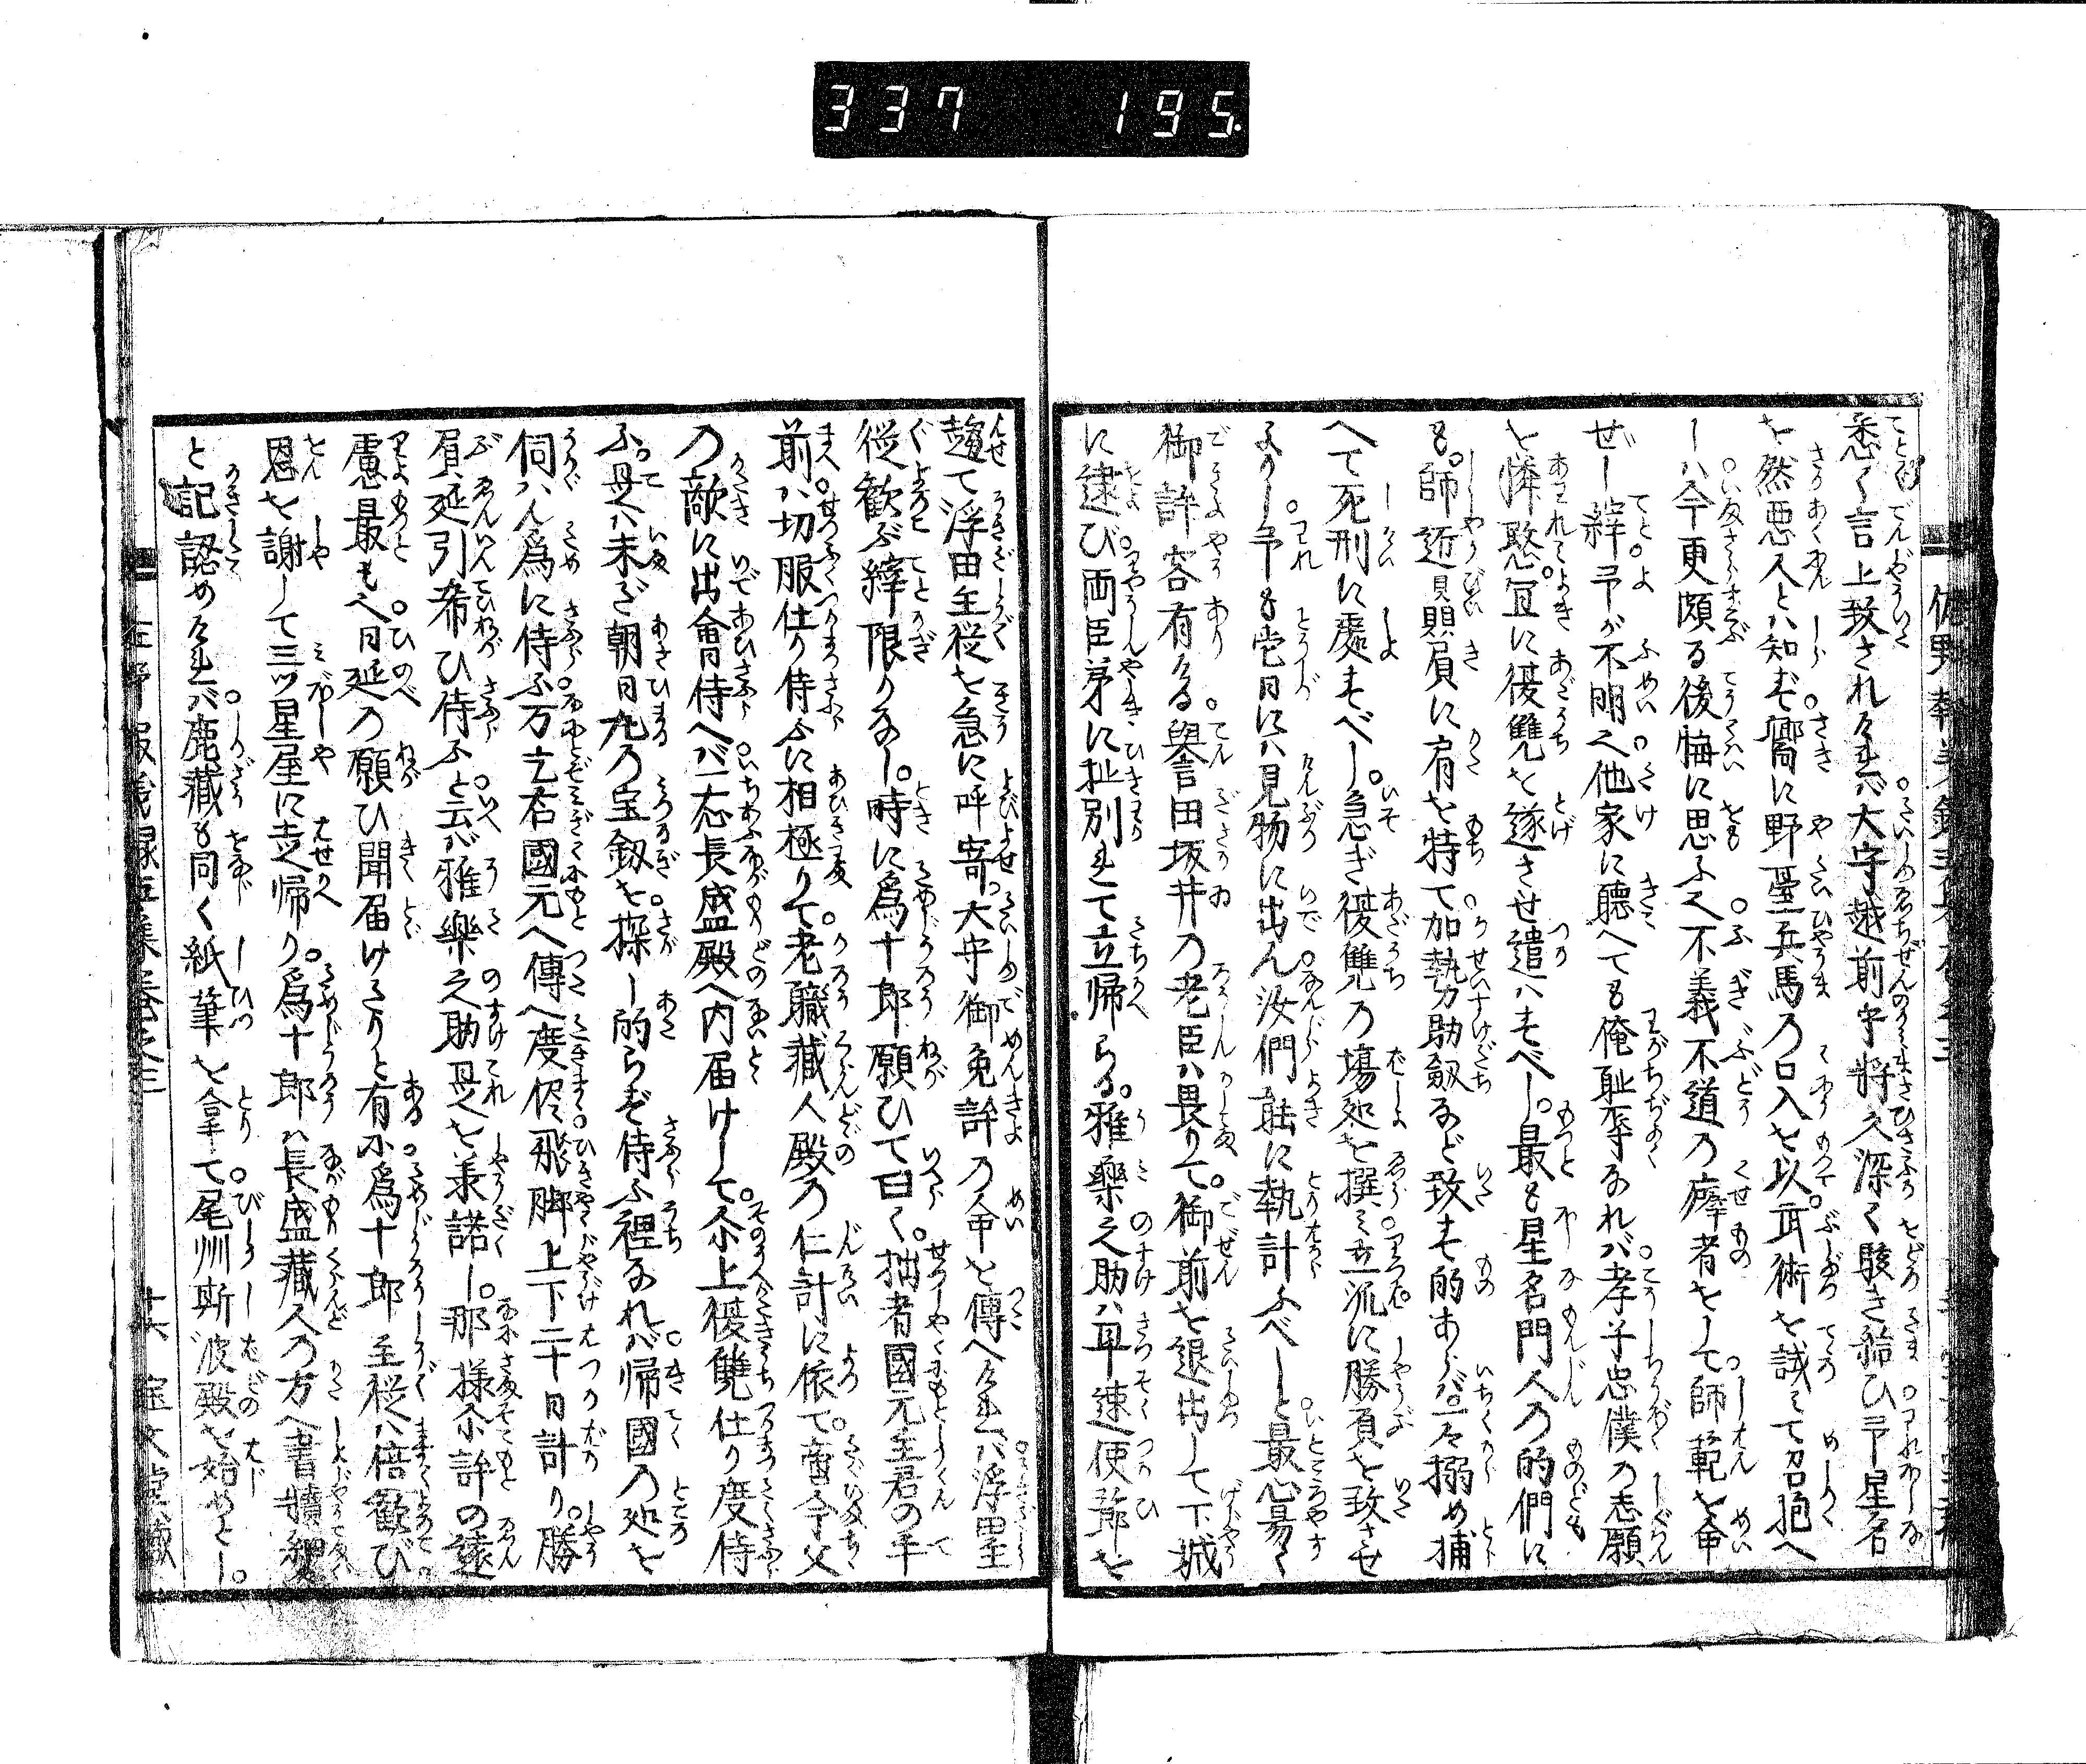 337 195.
悉く言上致されけれバ大守越前守将久深く駭き給ひ予星名
を然悪人とハ知ず嚮に野臺兵馬の口入を以武術を試ミて召抱へ
しハ今更頗る後悔に思ふ之不義不道の癖者をして師範を命
ぜし縡予が不明之他家に聴へても俺耻辱なれバ孝子忠僕の志願
を憐愍。宜に復讐を遂させ遣ハすべし。最も星名門人の的們に
も。師近贔屓に肩を持て加勢助釼など致す的あらバ一々搦め捕
へて死刑に處すべし。急ぎ復讐の場処を撰ミ立派に勝負を致させ
よかし予も當日にハ見物に出ん汝們能に執計ふべしと最心易く
御許容有ける譽田坂井の老臣ハ畏りて。御前を退出して下城
に逮び両臣茅に扯別れて立帰らる。雅樂之助ハ早速使節を
趨て浮田主従を急に呼寄大守御免許の命を傳へけれバ浮田主
従歓ぶ縡限りなし。時に爲十郎願ひて曰く。拙者國元主君の手
前ハ切服仕り侍ふに相極りて。老職藏人殿の仁計に依て。啻今父
の敵に出會侍へバ一応長盛殿へ内届けして。尒上復讐仕り度侍
ふ。且ハ未だ朝日丸の宝釼を探し的らず侍ふ裡なれバ帰國の処を
伺ハん爲に侍ふ万乞右國元へ傳へ度侭飛脚上下二十日計り。勝
負延引希ひ侍ふと云バ雅樂之助是を承諾し。那様尒許の遠
慮最も之日延の願ひ聞届けたりと有尒爲十郎主従ハ倍歓び
恩を謝して三ツ星屋に走帰り。爲十郎ハ長盛藏人の方へ書牘細
と記認めけれバ鹿藏も同く紙筆を拿て尾州斯波殿を始めとし。
十六 宝文堂蔵